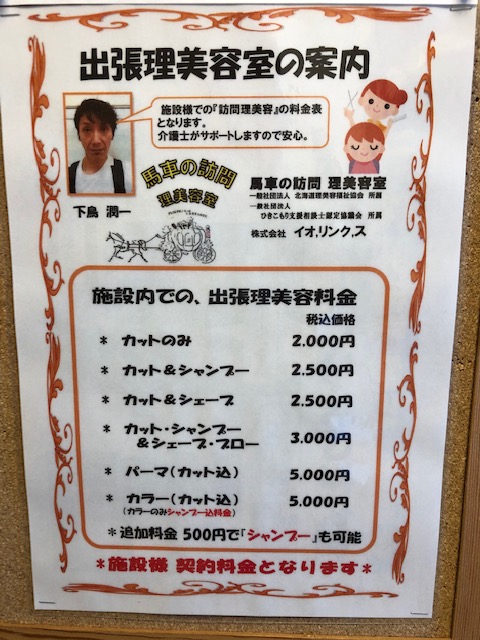 出張理美容室の案内
施設様での『訪問理美容』の料金表
となります。
介護士がサポートしますので安心。
下鳥 潤一
馬車の訪問
理美容室
馬車の訪問 理美容室
一般社団法人 北海道理美容福祉協会 所属
一般社団法人
ひきこもり支援相談士認定協議会 所属
株式会社 イオ,リンク,ス
施設内での、出張理美容料金
税込価格
* カットのみ 2.000円
* カット&シャンプー 2.500円
* カット&シェーブ 2.500円
* カット・シャンプー
&シェーブ・ブロー 3.000円
* パーマ(カット込) 5.000円
* カラー(カット込) 5.000円
(カラーのみシャンプー込料金)
*追加料金 500円で「シャンプー」も可能
*施設様 契約料金となります*